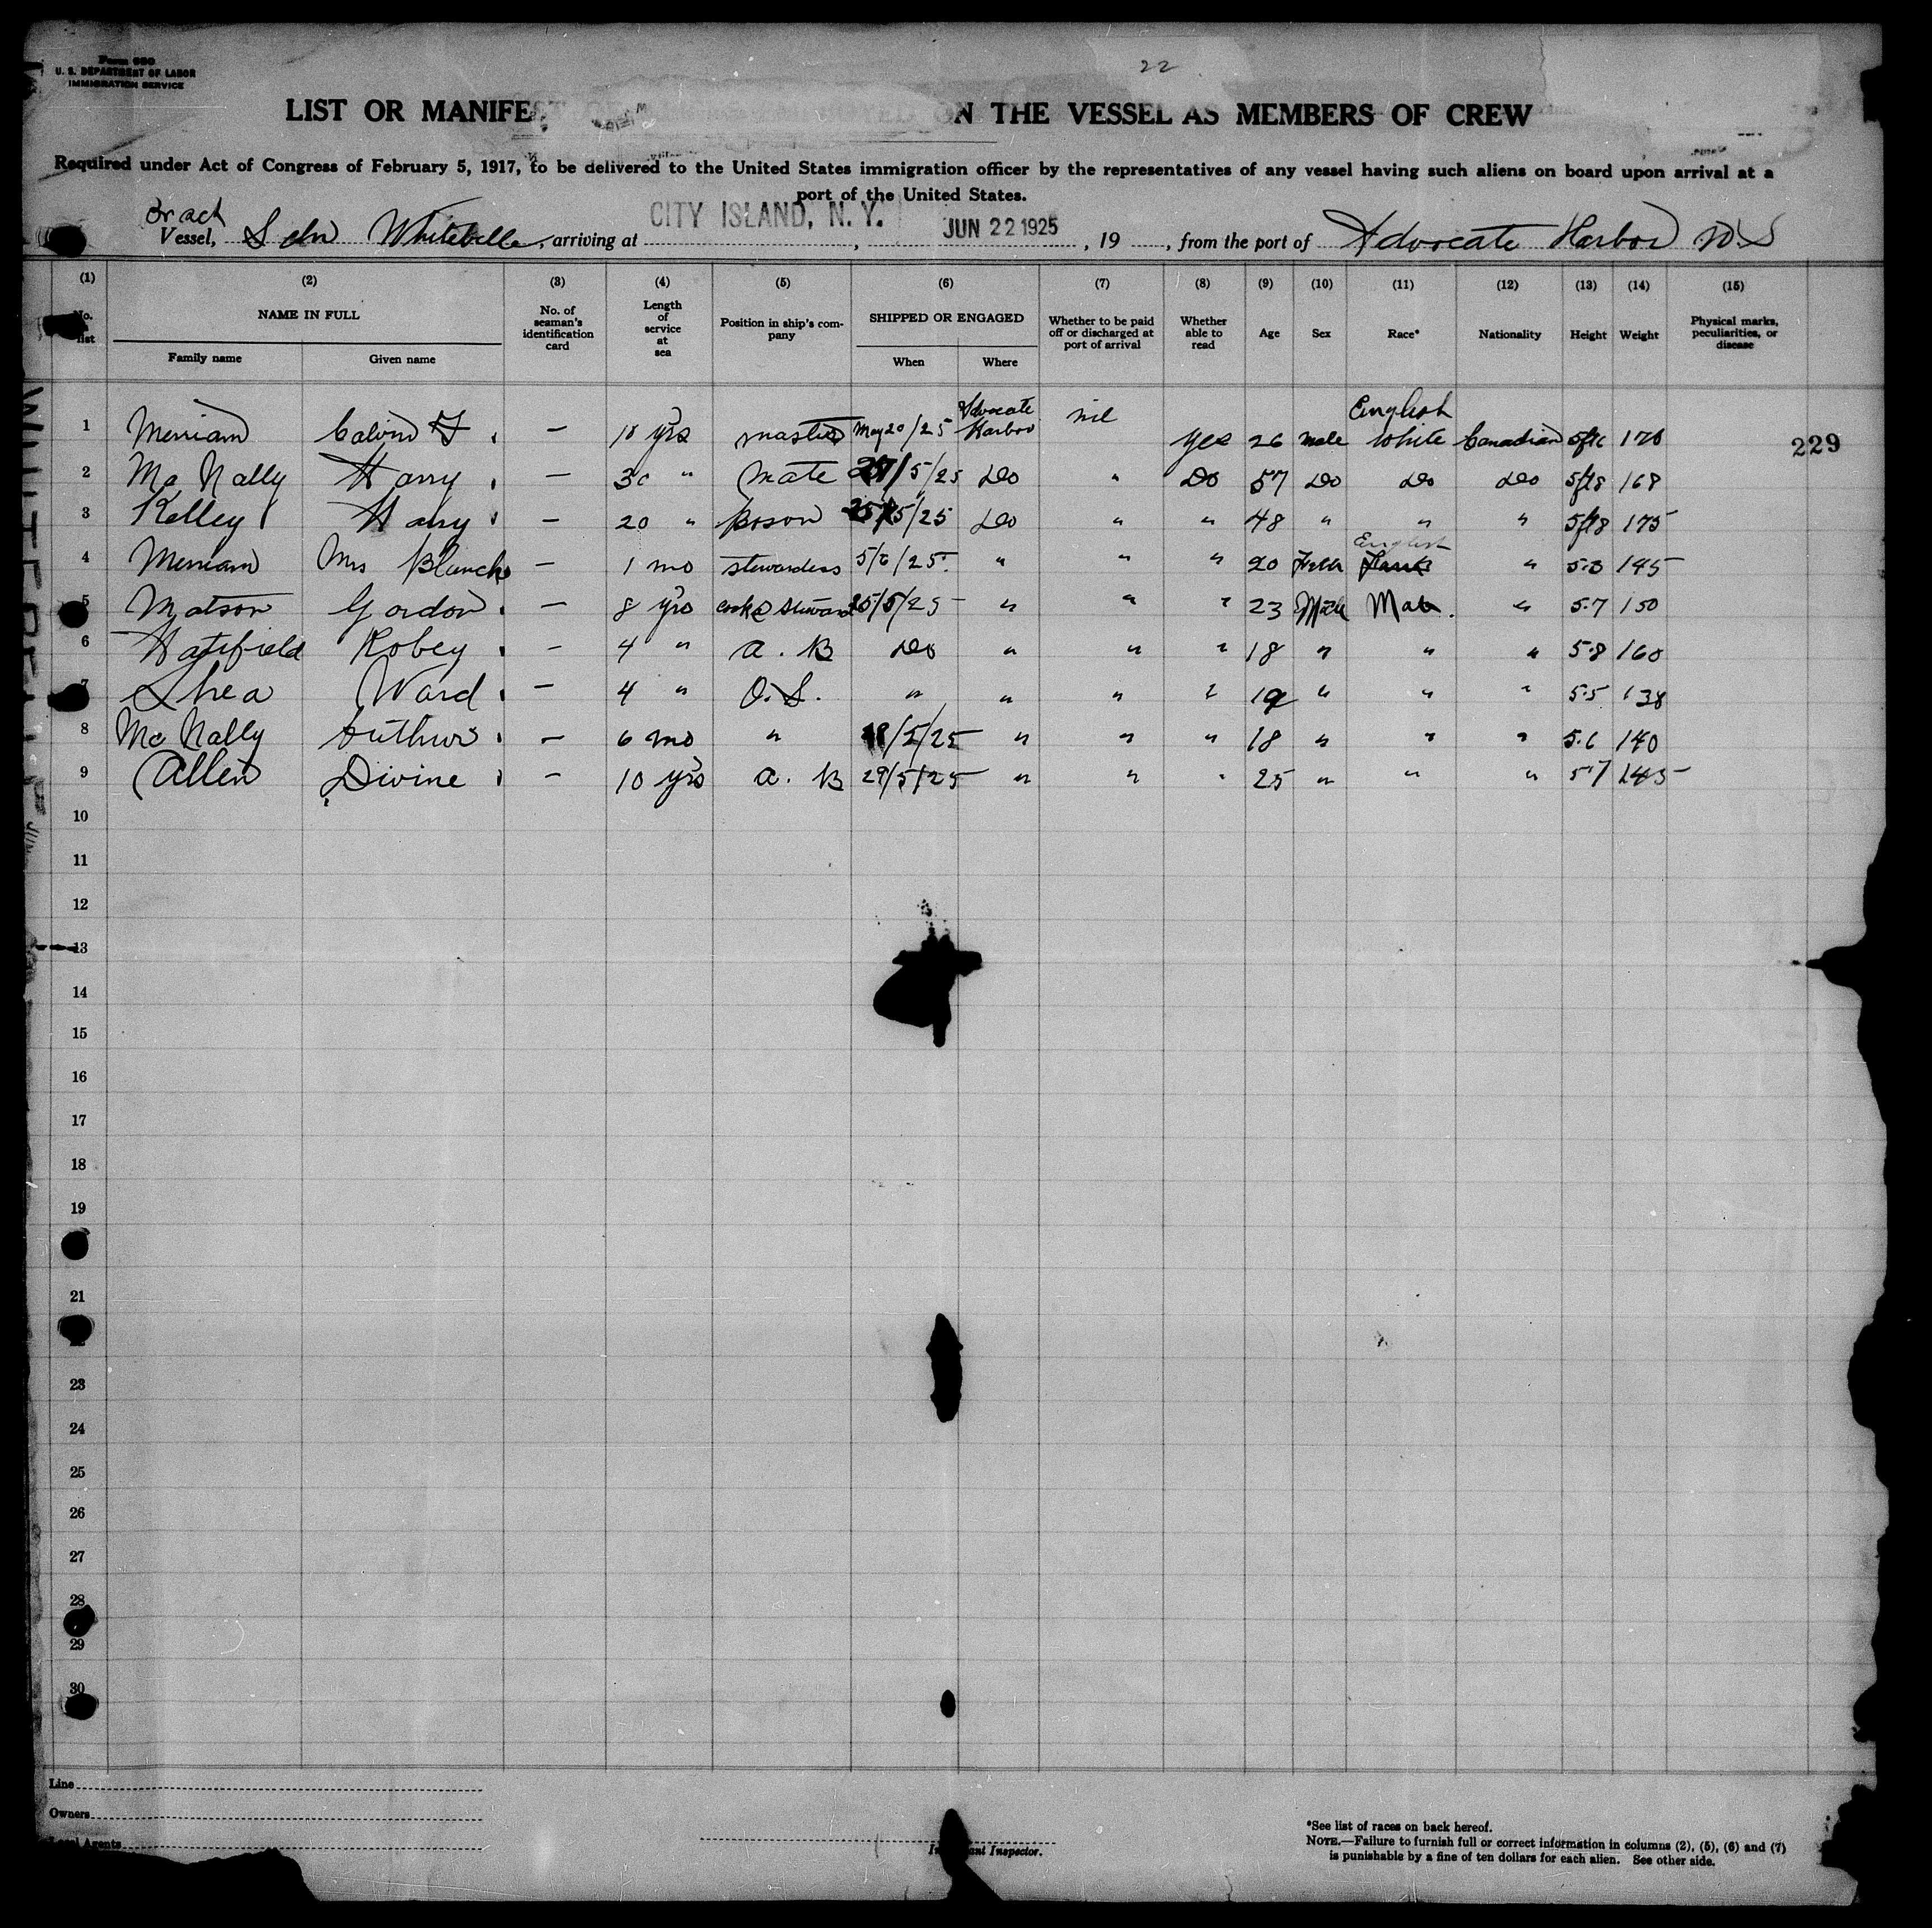 Form 680
U. S. DEPARTMENT OF LABOR
IMMIGRATION SERVICE
22
LIST OR MANIFEST ON THE VESSEL AS MEMBERS OF CREW
Required under Act of Congress of February 5, 1917, to be delivered to the United States immigration officer by the representatives of any vessel having such aliens on board upon arrival at a
port of the United States.
Vessel, Schr Whitebelle, arriving at CITY ISLAND, N. Y., JUN 22 1925, 19 , from the port of Advocate Harbor N.S
(1) (2) (3) (4) (5) (6) (7) (8) (9) (10) (11) (12) (13) (14) (15)
No. list NAME IN FULL No. of seaman's identification card Length of service at sea Position in ship's company SHIPPED OR ENGAGED Whether to be paid off or discharged at port of arrival Whether able to read Age Sex Race* Nationality Height Weight Physical marks, peculiarities, or disease
Family name Given name When Where
1 Merriam Calvin F. — yrs master May 20/25 Advocate Harbor nil yes 26 male English white Canadian 5ft6 170
229
2 Mc Nally Harry — 30 " mate 27/5/25 Do " Do 57 Do Do Do 5ft8 168
3 Kelley Harry — 20 " Boson 25/5/25 Do " " 48 " " " 5ft8 175
4 Merriam Mrs Blanche — 1 mo stewardess 5/6/25 " " " 20 English " 5.3 145
5 Matson Gordon — 8 yrs cook & steward 25/5/25 " " " 23 Male " 5.7 150
6 Hatfield Robey — 4 " A. B Do " " " 18 " " " 5.8 160
7 Shea Ward — 4 " O. S. " " " " 19 " " " 5.5 138
8 Mc Nally Authur — 6 mo " 18/5/25 " " " 18 " " " 5.6 140
9 Allen Divine — 10 yrs A. B 29/5/25 " " " 25 " " " 5.7 145
10
11
12
13
14
15
16
17
18
19
21
23
24
25
26
27
28
29
30
Line
Owners
Local Agents
Immigrant Inspector.
*See list of races on back hereof.
NOTE.—Failure to furnish full or correct information in columns (2), (5), (6) and (7)
is punishable by a fine of ten dollars for each alien. See other side.